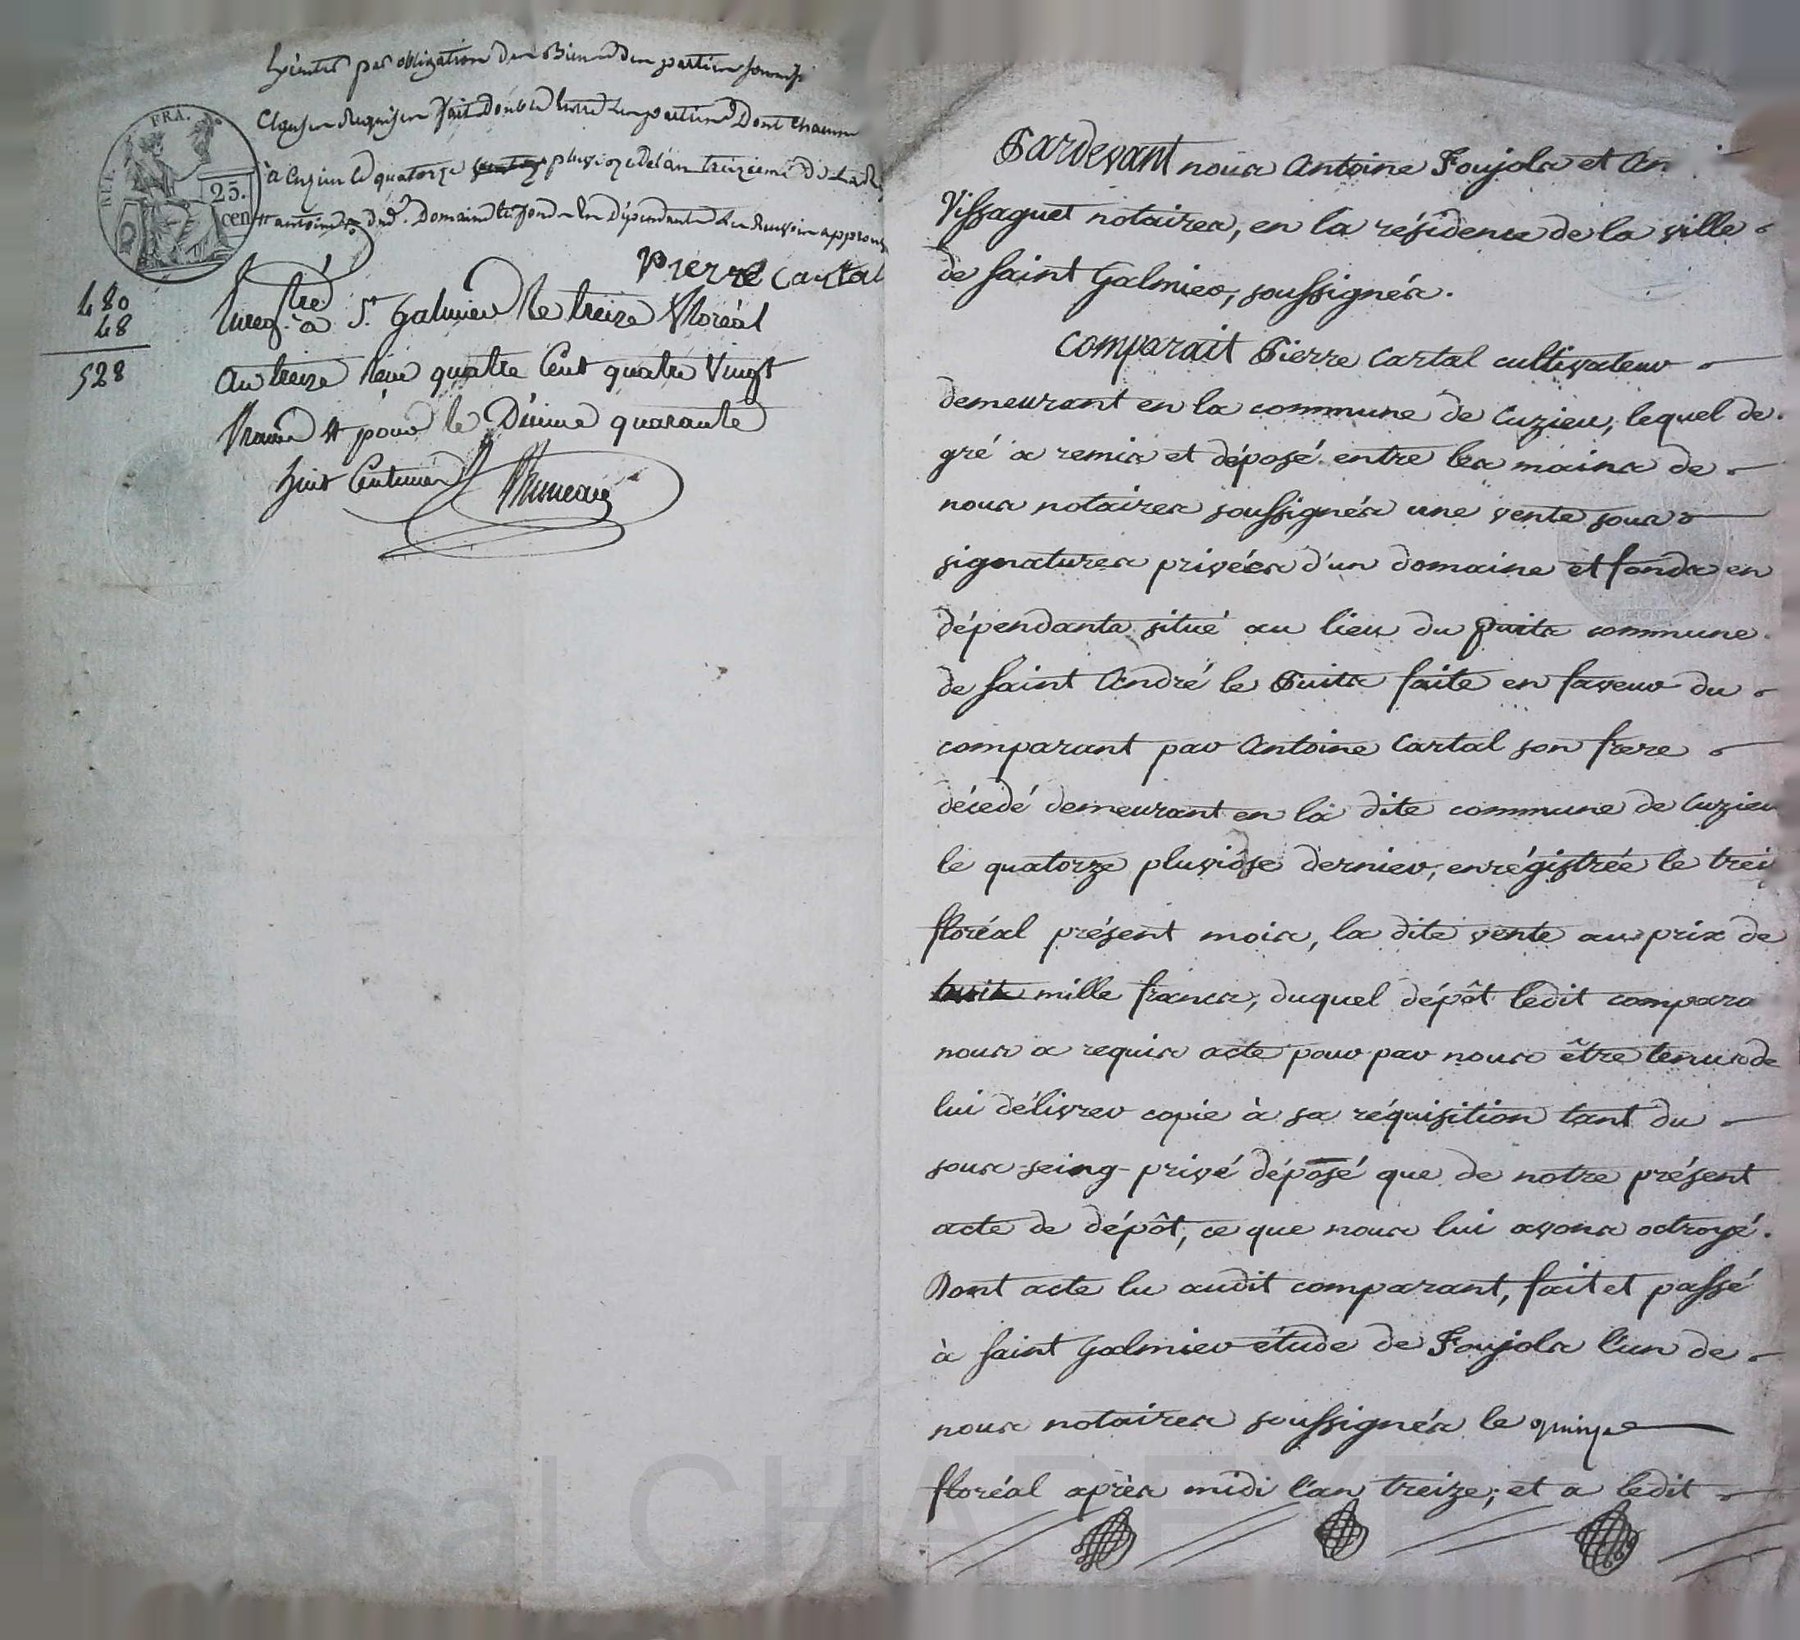 par obligation des Biens des parties
Clauses Requises fait double entre Les parties Dont chacun
à Cuzieu le quatorze pluviose de l'an treizieme de
antoine Domaine et fonds En Dépendants
Pierre Cartal
RÉP. FRA.
25.
cen
480
48
528
Enregtré à St Galmier le treize floréal
an treize reçu quatre Cent quatre Vingt
francs & pour le Décime quarante
huit Centimes
Pardevant nous Antoine Foujols et An
Vissaguet notaires, en la résidence de la ville
de Saint Galmier, soussignés.
comparait Pierre Cartal cultivateur
demeurant en la commune de Cuzieu, lequel de
gré a remis et déposé entre les mains de
nous notaires soussignés une vente sous
signatures privées d'un domaine et fonds en
dépendants situé au lieu du puits commune
de Saint André le Puits faite en faveur du
comparant par Antoine Cartal son frere
décedé demeurant en la dite commune de Cuzieu
le quatorze pluviôse dernier, enrégistrée le treiz
floréal présent mois, la dite vente au prix de
huit mille francs, duquel dépôt ledit compara
nous a requis acte pour par nous être tenus de
lui délivrer copie à sa réquisition tant du
sous-seing-privé déposé que de notre présent
acte de dépôt, ce que nous lui avons octroyé.
Dont acte lu audit comparant, fait et passé
à Saint Galmier étude de Foujols l'un de
nous notaires soussignés le quinze
floréal après midi l'an treize; et a ledit